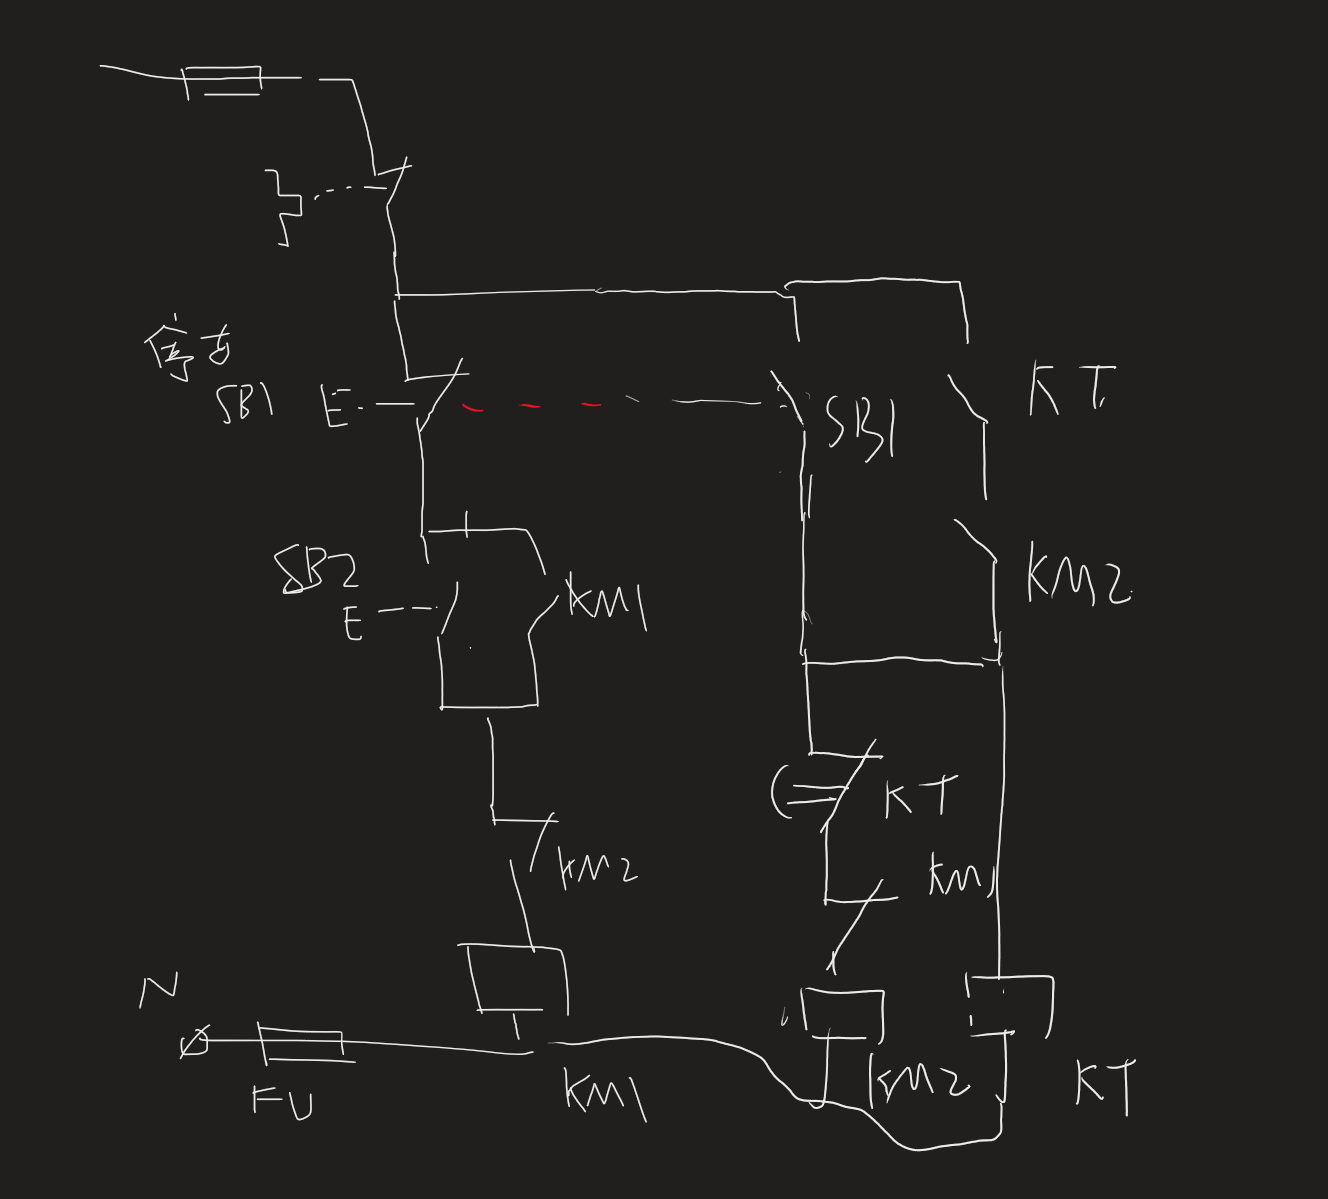 停止
SB1 E
SB1
KT
SB2
E
KM1
KM2
KT
KM2
KM1
N
FU
KM1
KM2
KT